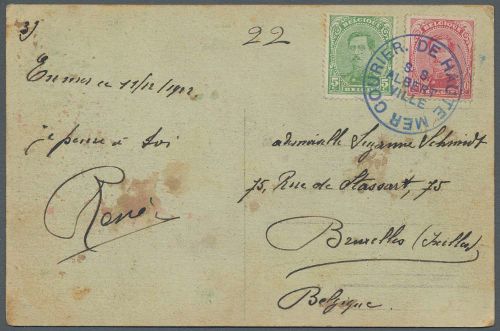 3)
22
En mer ce 11/12/1922
je pense à toi
René
BELGIQUE
5 5
BELGIË
BELGIQUE
COURIER. DE HAUTE MER
S. S.
ALBERT
VILLE
Mademoiselle Suzanne Schmidt
75, Rue de Stassart, 75
Bruxelles (Ixelles)
Belgique.